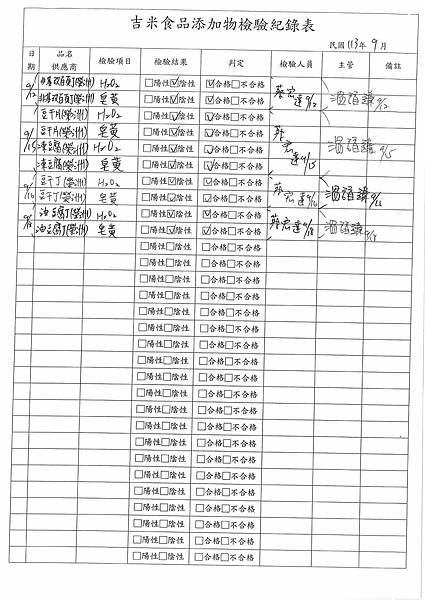 吉米食品添加物檢驗紀錄表
民國113年9月
日期 品名供應商 檢驗項目 檢驗結果 判定 檢驗人員 主管 備註
9/12 非基改百頁(榮洲) H₂O₂ □陽性☑陰性 ☑合格□不合格
非基改百頁(榮洲) 皂黃 □陽性☑陰性 ☑合格□不合格 蔡宏達9/12 9/12
豆干片(榮洲) H₂O₂ □陽性☑陰性 ☑合格□不合格
9/15 豆干片(榮洲) 皂黃 □陽性☑陰性 ☑合格□不合格
凍豆腐(榮洲) H₂O₂ □陽性☑陰性 ☑合格□不合格 蔡宏達9/15 9/15
凍豆腐(榮洲) 皂黃 □陽性☑陰性 ☑合格□不合格
9/16 豆干丁(榮洲) H₂O₂ □陽性☑陰性 ☑合格□不合格
豆干丁(榮洲) 皂黃 □陽性☑陰性 ☑合格□不合格 蔡宏達9/16
9/18 油豆腐丁(榮洲) H₂O₂ □陽性☑陰性 ☑合格□不合格
油豆腐丁(榮洲) 皂黃 □陽性☑陰性 ☑合格□不合格 蔡宏達9/18 9/18
□陽性□陰性 □合格□不合格
□陽性□陰性 □合格□不合格
□陽性□陰性 □合格□不合格
□陽性□陰性 □合格□不合格
□陽性□陰性 □合格□不合格
□陽性□陰性 □合格□不合格
□陽性□陰性 □合格□不合格
□陽性□陰性 □合格□不合格
□陽性□陰性 □合格□不合格
□陽性□陰性 □合格□不合格
□陽性□陰性 □合格□不合格
□陽性□陰性 □合格□不合格
□陽性□陰性 □合格□不合格
□陽性□陰性 □合格□不合格
□陽性□陰性 □合格□不合格
□陽性□陰性 □合格□不合格
□陽性□陰性 □合格□不合格
□陽性□陰性 □合格□不合格
□陽性□陰性 □合格□不合格
□陽性□陰性 □合格□不合格